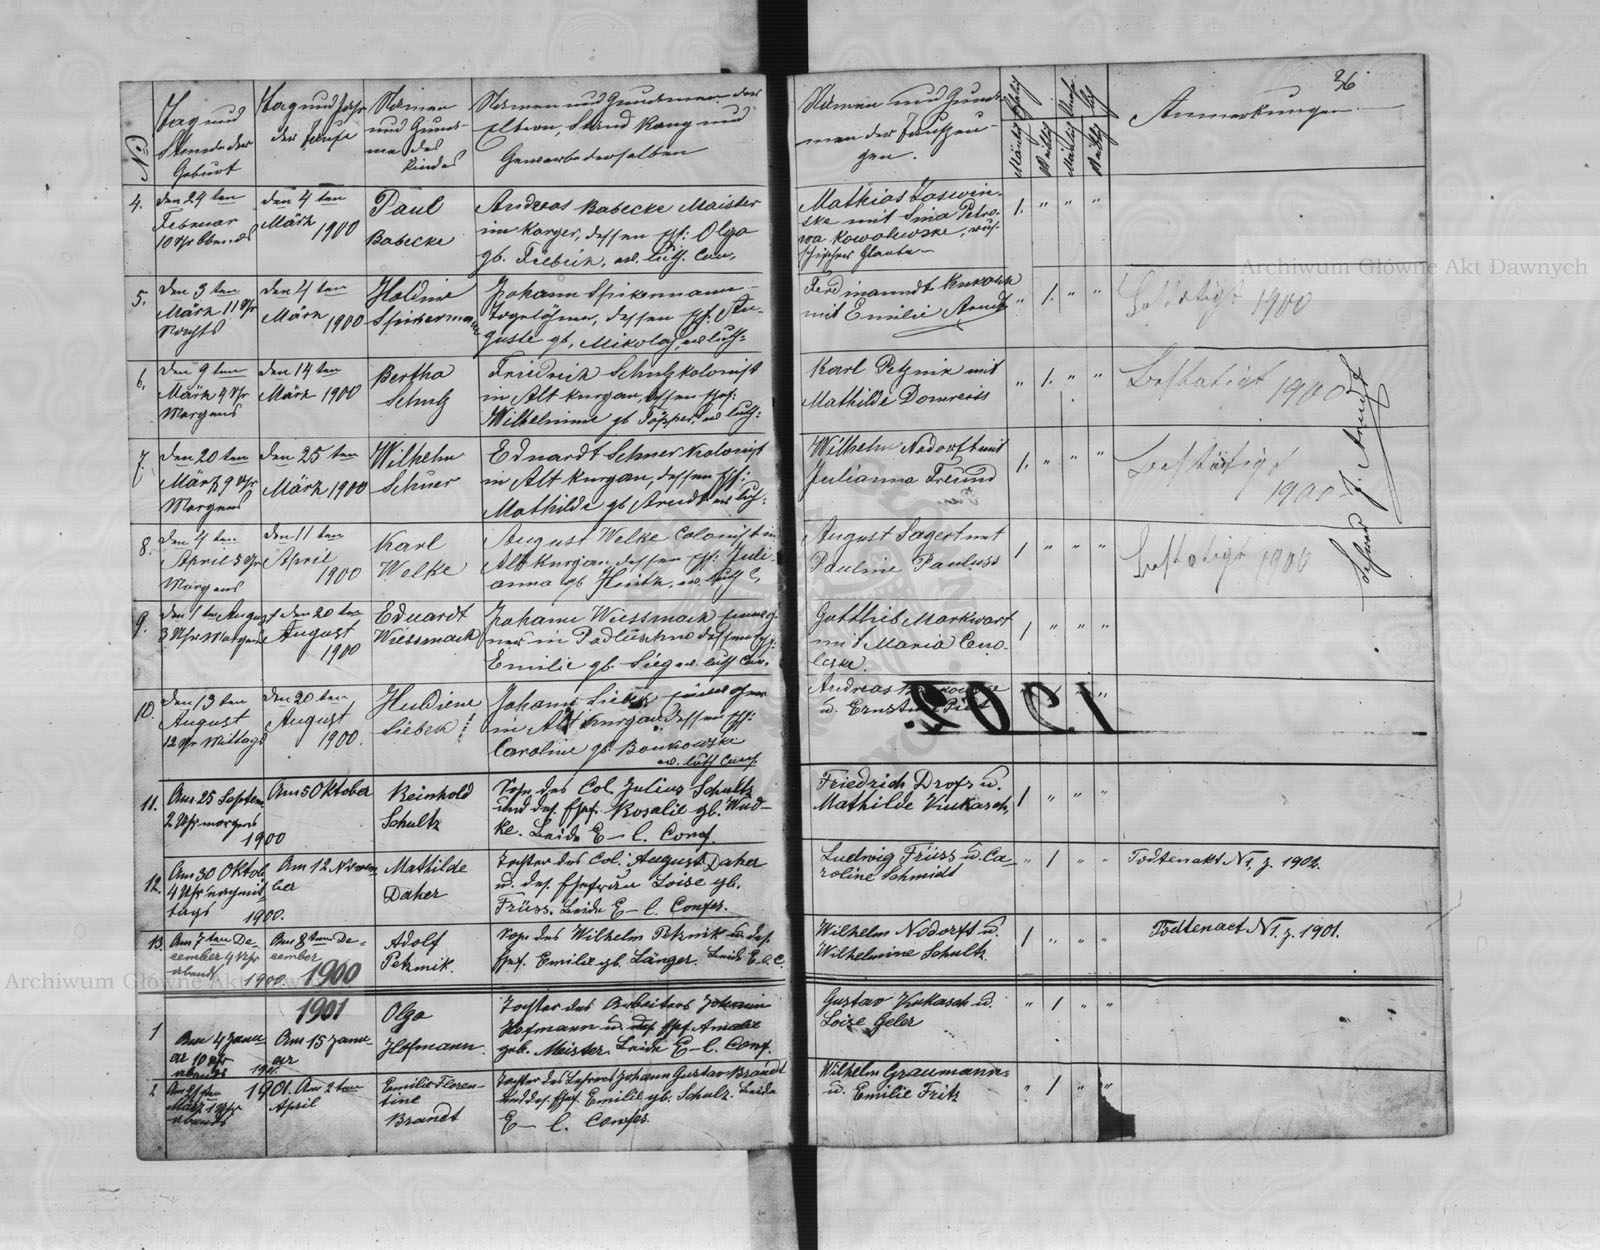 36
No
Tag und
Stunde der
Geburt
Tag und Jahr
der Taufe
Namen
und Zuna-
me des
Kindes
Namen und Zunamen der
Eltern, Stand Rang und
Gewerbe derselben
Namen und Zuna-
men der Taufzeu-
gen.
Anmerkungen
4.
den 24 ten
Februar
10 Uhr Abends
den 4 ten
März 1900
Paul
Babecke
Andreas Babecke Maister
im Karger, dessen Olga
gb. ev. luth. Con.
Mathias
mit Petro-
wa Kowalewske,
Glauben
1. " " "
5.
den 3 ten
März 11 Uhr
Nachts
den 4 ten
März 1900
Johann Spikermann
Tagelöhner, dessen Au-
guste gb. Mikolaj, ev luth:
Ferdinandt Kukasch
mit Emilie Arndt
" 1. " "
Bestätigt 1900
6.
den 9 ten
März 4 Uhr
Morgens
den 14 ten
März 1900
Bertha
Schulz
Friedrich Schulz kolonist
in Alt kurgan, dessen
Wilhelmine gb Töpper, ev luth:
Karl Petznik mit
Mathilde Domresis
" 1. " "
Bestatigt 1900
7.
den 20 ten
März 9 Uhr
Morgens
den 25 ten
März 1900
Wilhelm
Schner
Eduardt Schner Kolonist
in Alt kurgan, dessen
Mathilde gb Arndt ev luth:
Wilhelm Nadorft mit
Julianna Freund
1. " " "
Bestätigt
1900
J. Arndt
8.
den 4 ten
April 5 Uhr
Morgens
den 11 ten
April
1900
Karl
Welke
August Welke Colonist in
Alt kurgan, dessen Juli-
anna gb Heitz, ev luth C,
August Sagert mit
Pauline Pauluss
1 " " "
Bestatigt 1900
9.
den 1 ten August
3 Uhr Morgens
den 20 ten
August
1900
Eduardt
Wiessmack
Johann Wiessmack
ner in dessen
Emilie gb. Sieg ev. luth Con.
Gotthib Markwart
mit Maria
1 " " "
10.
den 13 ten
August
12 Uhr Mittags
den 20 ten
August
1900.
Huldiene
Siebek
Johann Siebek
in Alt kurgan dessen
Caroline gb. Bonkowske
ev. luth Conf.
Andreas
u.
1902.
11.
Am 25 Septem
2 Uhr morgens
1900
Am 5 Oktober
Reinhold
Schultz
Sohn des Col. Julius Schultz
und des. Ehef. Rosalie gb. Wud-
ke. Beide E – l. Conf.
Friedrich Drofs u.
Mathilde Kukasch,
1 " " "
12.
Am 30 Oktob.
4 Uhr nachmit-
tags
1900.
Am 12 Novem-
ber
Mathilde
Daher
Tochter des Col. August Daher
u. des. Ehefrau Loise gb.
Früss. Beide E – l. Confes.
Ludwig Früss u. Ca-
roline Schmidt
" 1 " "
Todtenakt N 1. z. 1902.
13.
Am 7 ten De-
cember 4 Uhr
abends
1900.
Am 8 ten De-
cember
1900
Adolf
Petznik.
Sohn des Wilhelm Petznik u. des.
Ehef. Emilie gb. Länger. Beide E. l. C.
Wilhelm Nodorft u.
Wilhelmine Schultz
1 " " "
Todtenact N 1. z. 1901.
1901
1
Am 4 Janu-
ar 10 Uhr
abends
Am 15 Janu-
ar
1901.
Olga
Hofmann.
Tochter des Arbeiters Johann
Hofmann u. des Ehef Amalie
geb. Meister. Beide E – l. Conf.
Gustav Kukasch u.
Loise Geler
" 1 " "
2
Am 21 ten
März 1 Uhr
abends
1901. Am 2 ten
April
Emilie Floren-
tine
Brandt
Tochter des Lehrers Johann Gustav Brandt
und des. Ehef. Emilie gb. Schulz. Beide
E – l. Confes.
Wilhelm Graumann
u. Emilie Fritz
" 1 " "
Archiwum Główne Akt Dawnych
Archiwum Główne Akt Dawnych